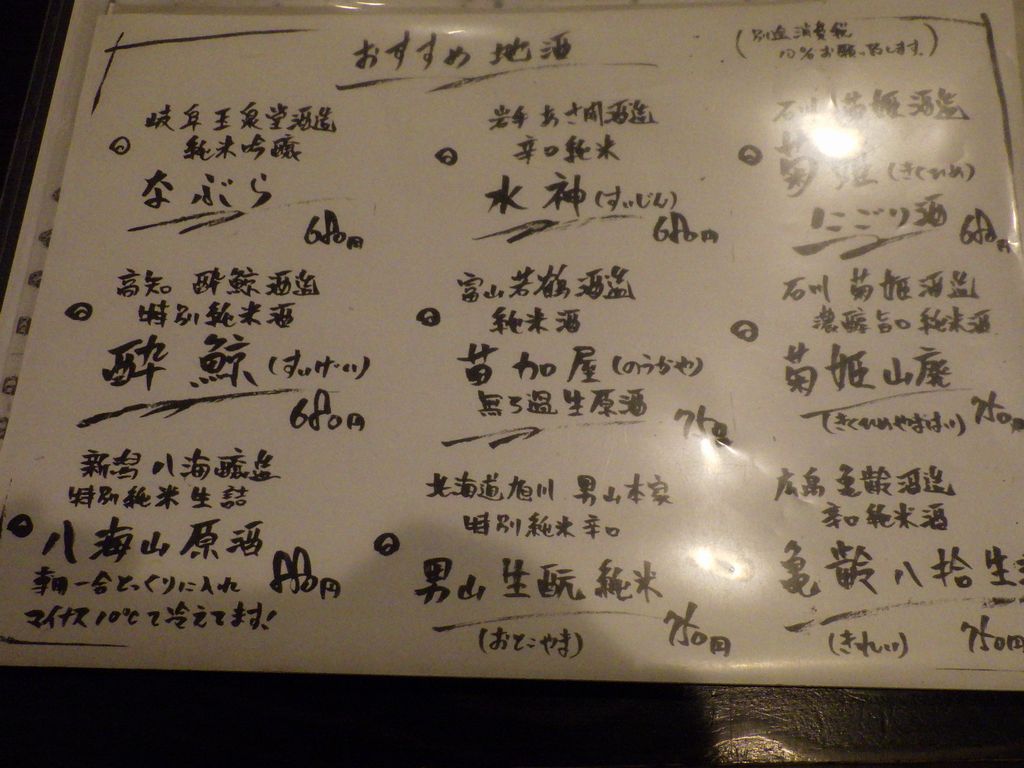 おすすめ 地酒
(別途消費税
10%お願い致します。)
岐阜 玉泉堂酒造
純米吟醸
なぶら
680円
岩手 あさ開酒造
辛口純米
水神(すいじん)
680円
石川 菊姫酒造
菊姫(きくひめ)
にごり酒
680円
高知 酔鯨酒造
特別純米酒
酔鯨(すいげい)
680円
富山 若鶴酒造
純米酒
苗加屋(のうかや)
無ろ過生原酒
750
石川 菊姫酒造
濃醇旨口純米酒
菊姫山廃
(きくひめやまはい)
750円
新潟 八海醸造
特別純米生詰
八海山原酒
専用一合とっくりに入れ
マイナス10℃で冷えてます!
880円
北海道旭川 男山本家
特別純米辛口
男山生酛純米
(おとこやま)
750円
広島 亀齢酒造
辛口純米酒
亀齢八拾生
(きれい)
750円